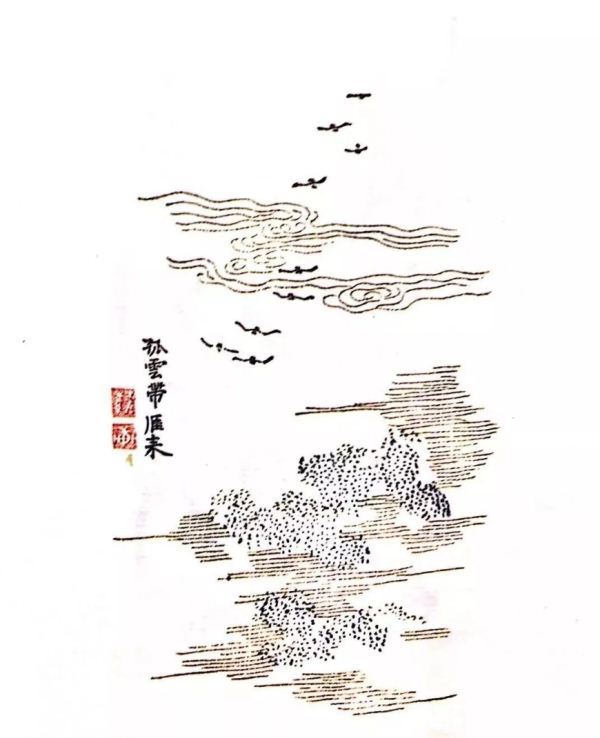 孤雲帶雁来